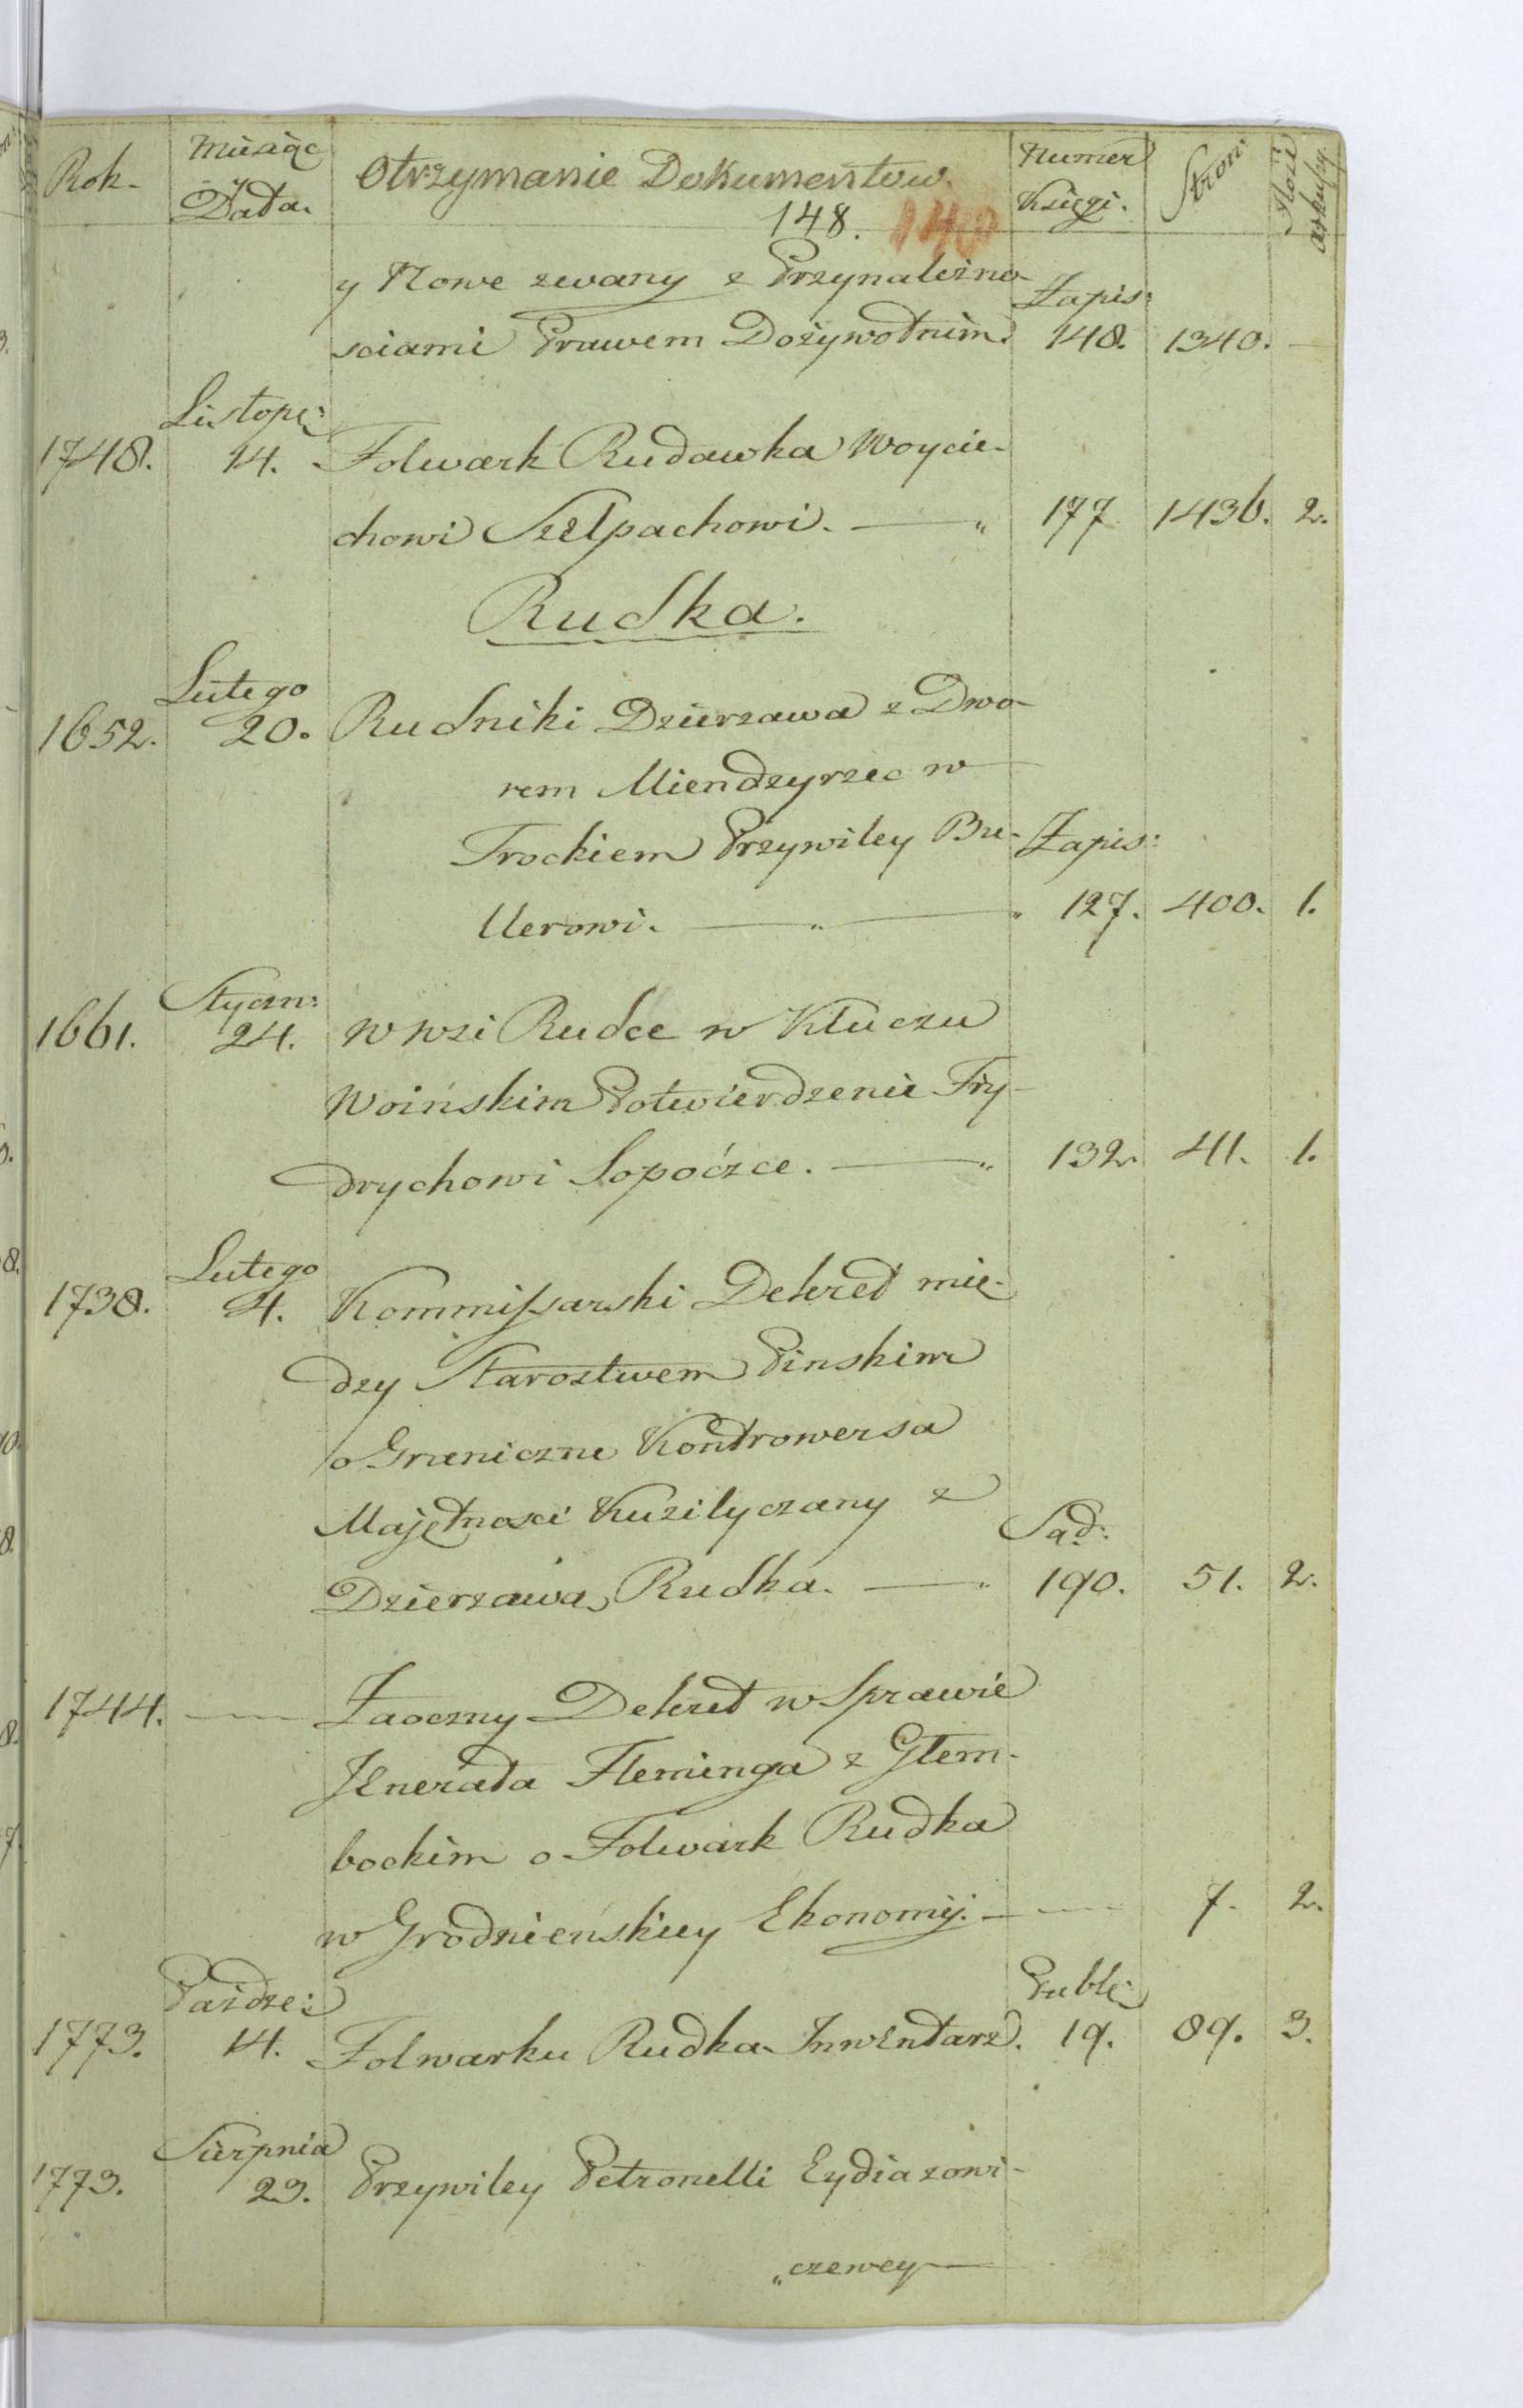 Rok. Miesiąc Data. Otrzymanie Dokumentow. Numer Księgi. Stron: Ilość arkuszy.
148. 140
y Nowe zwany z Przynalezno- Zapis:
sciami Prawem Dożywotnim. 148. 1340. —
Listop:
1748. 14. Folwark Rudawka Woycie-
chowi Szelpachowi. — „ 177 1436. 2.
Rudka.
Lutego
1652. 20. Rudniki Dzierzawa z Dwo-
rem Miendzyrzec w
Trockiem Przywiley Bre- Zapis:
llerowi. — „ — „ 127. 400. 1.
Styczn:
1661. 24. w wsi Rudce w Kluczu
Woińskim Potwierdzenie Fry-
drychowi Sopoćzce. — „ 132. 411. 1.
Lutego
1738. 4. Kommissarski Dekret mię-
dzy Starostwem Pinskim
o Graniczne Kontrowersa
Majętnosci Kuzilyczany z
Dzierzawą Rudka. — „ 190. 51. 2.
Sąd:
1744. — Zaoczny Dekret w Sprawie
Jenerała Fleminga z Głem-
bockim o Folwark Rudka
w Grodzieńskiey Ekonomij. — 7. 2.
Paźdze: Publi:
1773. 14. Folwarku Rudka Inwentarz. 19. 89. 3.
Sierpnia
1773. 23. Przywiley Petronelli Eydiazowi-
„czewey —